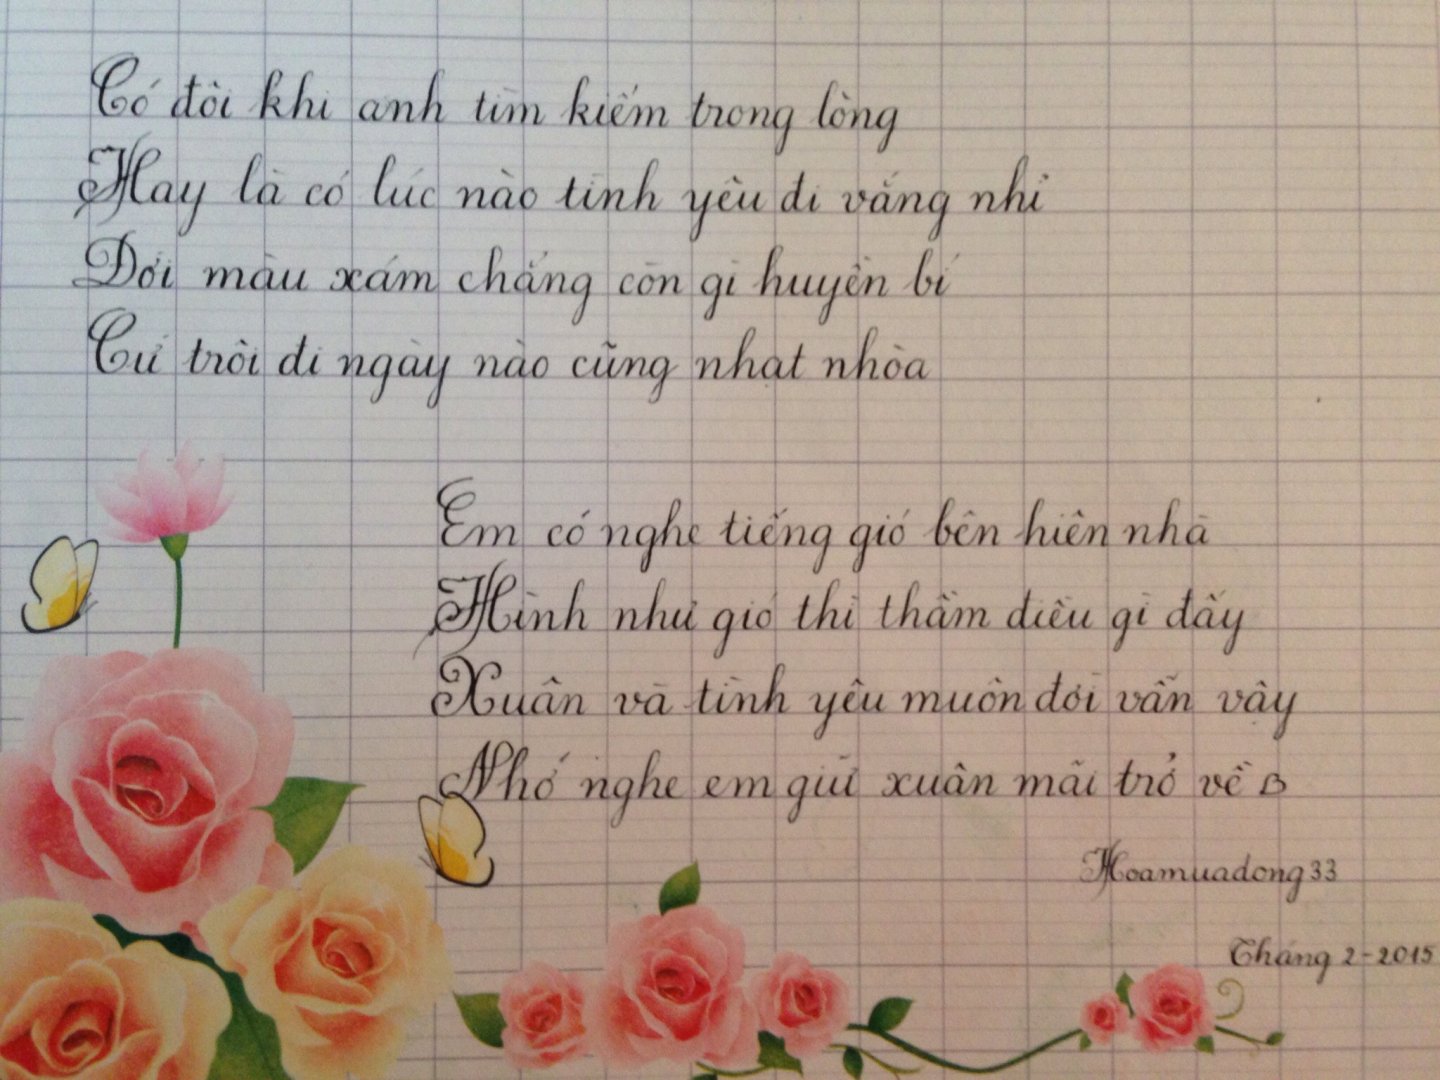 Có đôi khi anh tìm kiếm trong lòng
Hay là có lúc nào tình yêu đi vắng nhỉ
Đời màu xám chẳng còn gì huyền bí
Cứ trôi đi ngày nào cũng nhạt nhòa
Em có nghe tiếng gió bên hiên nhà
Hình như gió thì thầm điều gì đấy
Xuân và tình yêu muôn đời vẫn vậy
Nhớ nghe em giữ xuân mãi trở về
Hoamuadong33
Tháng 2-2015